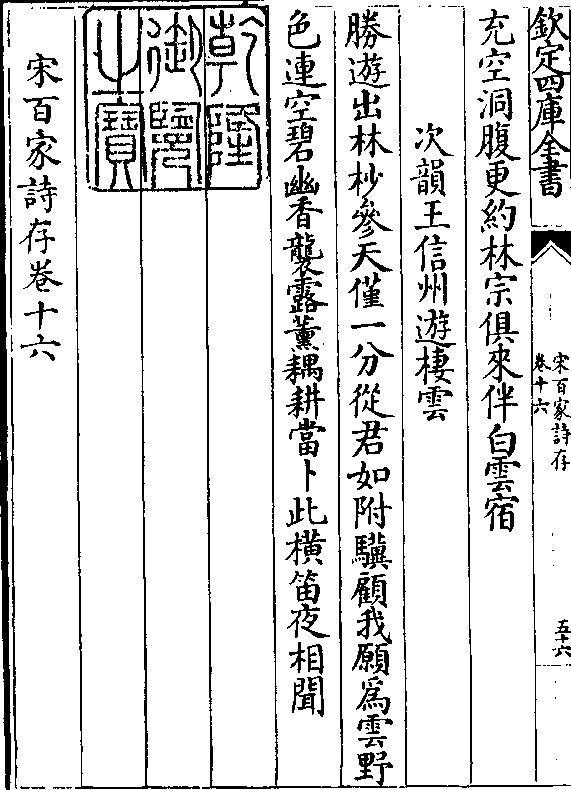 欽定四庫全書
宋百家詩存
卷十六
五十六
充空洞腹更約林宗俱來伴白雲宿
次韻王信州遊棲雲
勝遊出林杪參天僅一分從君如附驥顧我願為雲野
色連空碧幽香襲露薰耦耕當卜此橫笛夜相聞
乾隆
御覽
之寶
宋百家詩存卷十六